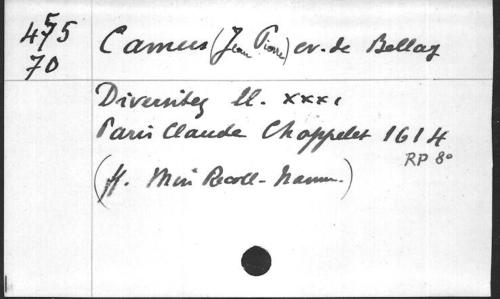 4575 Camus (Jean Pierre) ev. de Bellay
70
Diversitez ll. xxxi
Paris Claude Chappelet 1614
RP 8°
(ff. Min Recoll- Namur.)